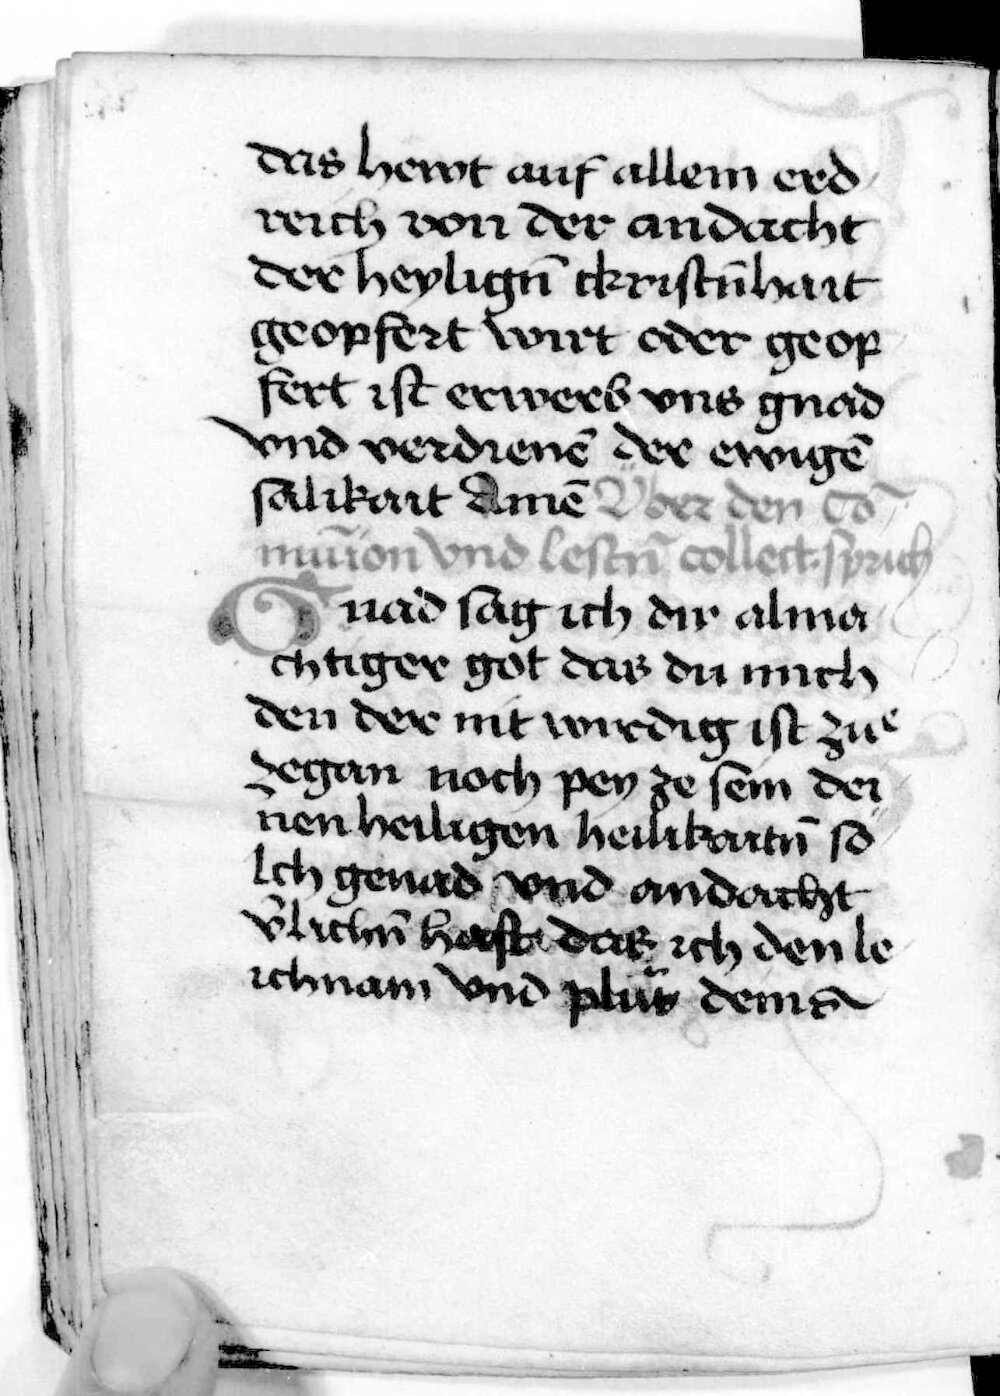 das hewt auf allem erd
reich von der andacht
der heyligñ ckristñhait
geopfert wirt oder geop
fert ist erwerb vns gnad
vnd verdienē der ewigē
sälikait Amē Vber den Cō
mūion vnd lestñ collect sprich
Gnad sag ich dir alma
chtiger got das du mich
den der nit wirdig ist zue
zegan noch pey ze sein dei
nen heiligen heilikaitñ so
lch genad vnd andacht
v̄lichñ hast das ich den le
ichnam vnd plüt deins